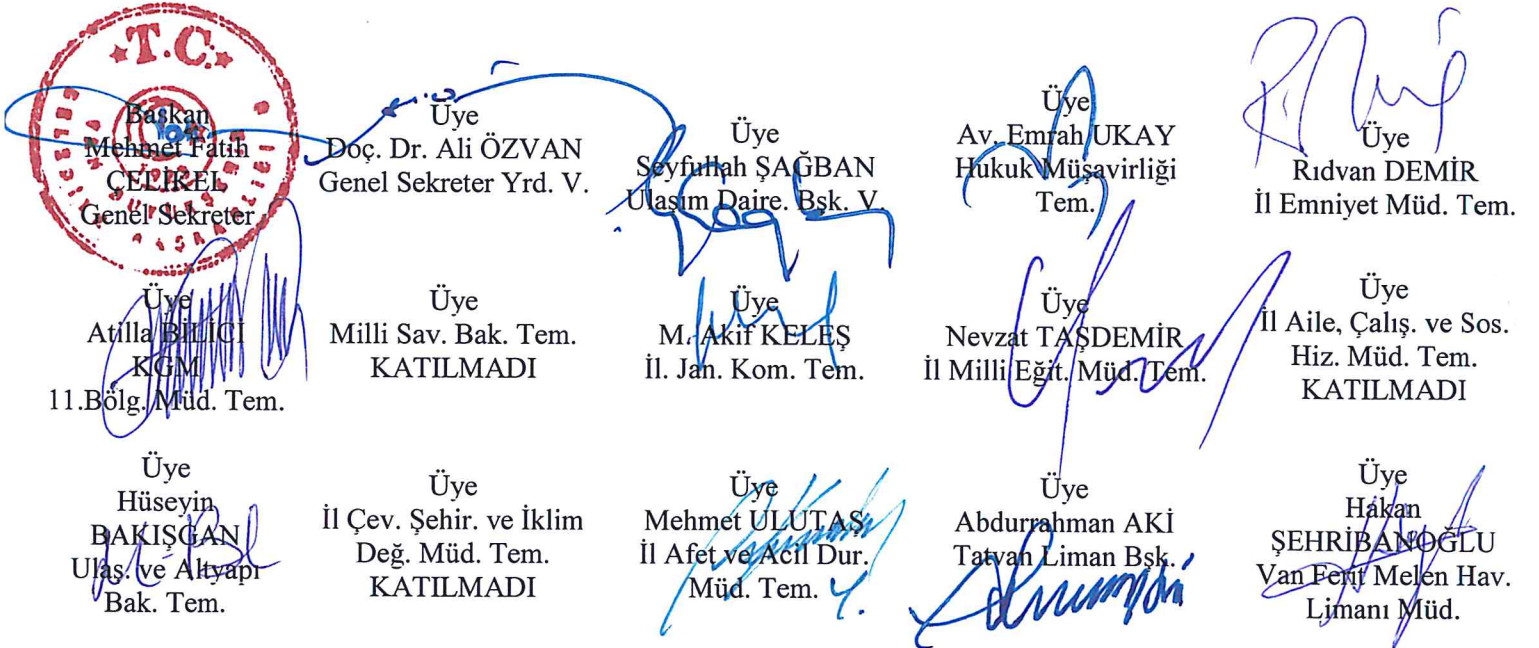 T.C.
Başkan
Mehmet Fatih
ÇELİKEL
Genel Sekreter
Üye
Doç. Dr. Ali ÖZVAN
Genel Sekreter Yrd. V.
Üye
Seyfullah ŞAĞBAN
Ulaşım Daire. Bşk. V.
Üye
Av. Emrah UKAY
Hukuk Müşavirliği
Tem.
Üye
Rıdvan DEMİR
İl Emniyet Müd. Tem.
Üye
Atilla BİLİCİ
KGM
11.Bölg. Müd. Tem.
Üye
Milli Sav. Bak. Tem.
KATILMADI
Üye
M. Akif KELEŞ
İl. Jan. Kom. Tem.
Üye
Nevzat TAŞDEMİR
İl Milli Eğit. Müd. Tem.
Üye
İl Aile, Çalış. ve Sos.
Hiz. Müd. Tem.
KATILMADI
Üye
Hüseyin
BAKIŞGAN
Ulaş. ve Altyapı
Bak. Tem.
Üye
İl Çev. Şehir. ve İklim
Değ. Müd. Tem.
KATILMADI
Üye
Mehmet ULUTAŞ
İl Afet ve Acil Dur.
Müd. Tem.
Üye
Abdurrahman AKİ
Tatvan Liman Bşk.
Üye
Hakan
ŞEHRİBANOĞLU
Van Ferit Melen Hav.
Limanı Müd.